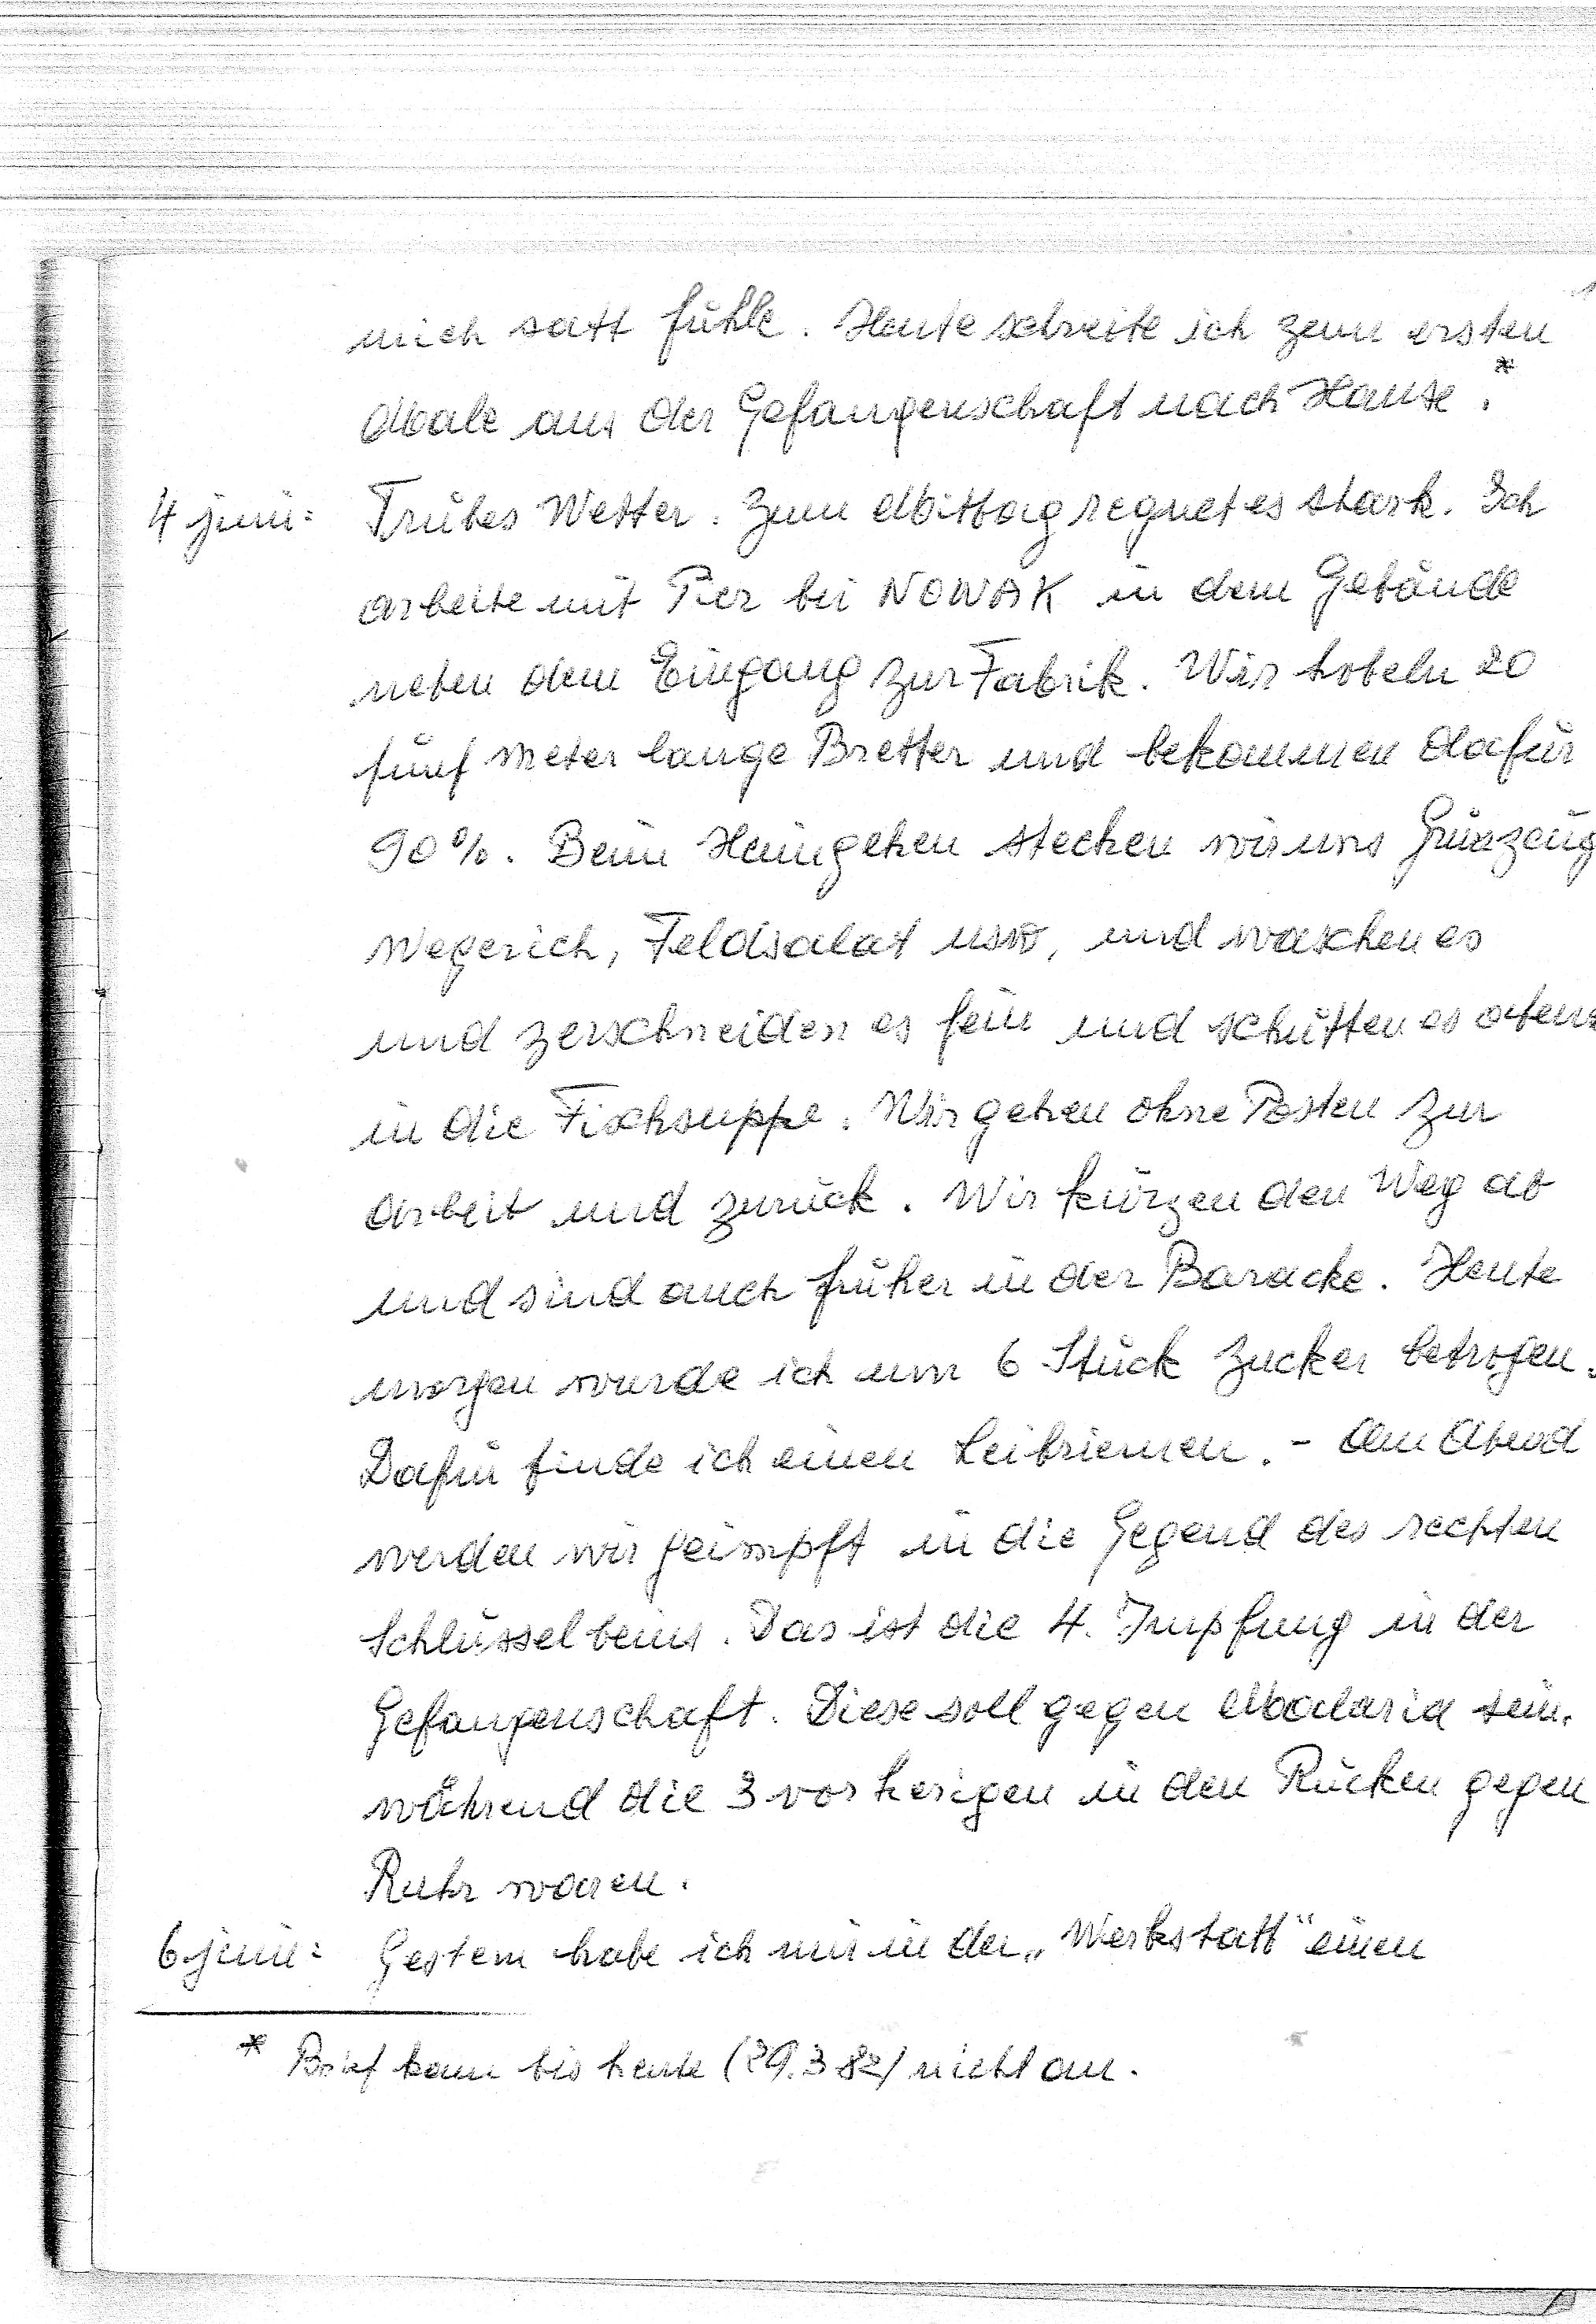 mich satt fühle. Heute schreibe ich zum ersten
Male aus der Gefangenschaft nach Hause.*
4 juni: Trübes Wetter. Zum Mittag regnet es stark. Ich
arbeite mit Pier bei NOWAK in dem Gebäude
neben dem Eingang zur Fabrik. Wir hobeln 20
fünf meter lange Bretter und bekommen dafür
90%. Beim Heimgehen stecken wir uns Grünzeug
Wegerich, Feldsalat usw, und waschen es
und zerschneiden es fein und schütten es abends
in die Fischsuppe. Wir gehen ohne Posten zur
Arbeit und zurück. Wir kürzen den Weg ab
und sind auch früher in der Baracke. Heute
morgen wurde ich um 6 Stück Zucker betrogen.
Dafür finde ich einen Leibriemen. - Am Abend
werden wir geimpft in die Gegend des rechten
Schlüsselbeins. Das ist die 4. Impfung in der
Gefangenschaft. Diese soll gegen Malaria sein.
während die 3 vorherigen in den Rücken gegen
Ruhr waren.
6 juni: Gestern habe ich mir in der „Werkstatt" einen
* Brief kam bis heute (29.3 82) nicht an.